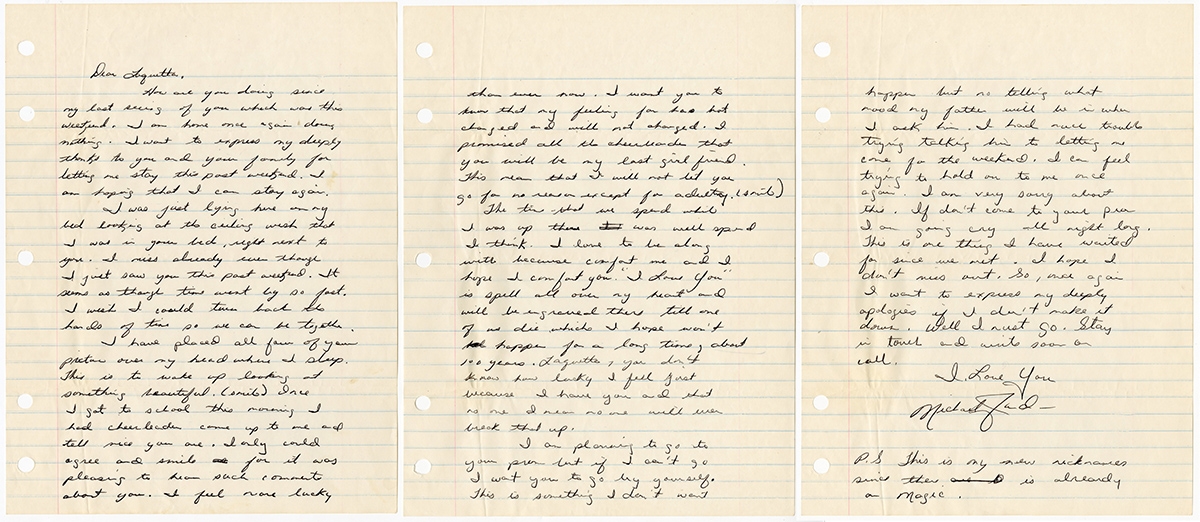 Dear Laquetta,
How are you doing since
my last seeing of you which was this
weekend. I am home once again doing
nothing. I want to express my deeply
thanks to you and your family for
letting me stay this past weekend. I
am hoping that I can stay again.
I was just lying here on my
bed looking at the ceiling wish that
I was in your bed, right next to
you. I miss already even though
I just saw you this past weekend. It
seems as though time went by so fast.
I wish I could turn back the
hands of time so we can be together.
I have placed all four of your
picture over my head where I sleep.
This is to wake up looking at
something beautiful. (smile) Once
I got to school this morning I
had cheerleader come up to me and
tell nice you are. I only could
agree and smile for it was
pleasing to hear such comments
about you. I feel more lucky
than ever now. I want you to
know that my feeling for has not
changed and will not changed. I
promised all the cheerleader that
you will be my last girl friend.
This mean that I will not let you
go for no reason except for adultry. (smile)
The time that we spend while
I was up there was well spend
I think. I love to be along
with because comfort me and I
hope I comfort you. "I Love You"
is spell all over my heart and
will be engraved there till one
of us die which I hope won't
happen for a long time, about
100 years. Laquetta, you don't
know how lucky I feel just
because I have you and that
no one I mean no one will ever
break that up.
I am planning to go to
your prom but if I can't go
I want you to go by yourself.
This is something I don't want
happen but no telling what
mood my father will be in when
I ask him. I had nuce trouble
trying talking him to letting me
come for the weekend. I can feel
trying to hold on to me once
again. I am very sorry about
this. If don't come to your prom
I am going cry all night long.
This is one thing I have wanted
for since we met. I hope I
don't miss out. So once again
I want to express my deeply
apologies if I don't make it
down. Well I must go. Stay
in touch and write soon or
call.
I Love You
Michael
P.S This is my new nicknames
since there is already
a Magic.